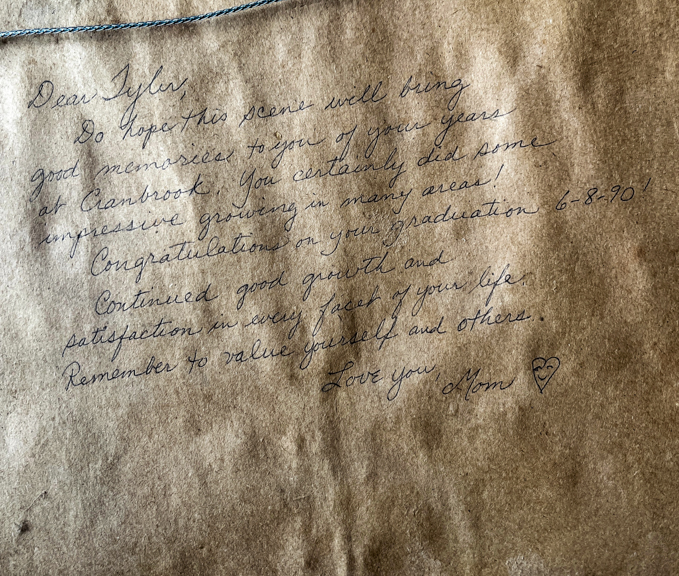 Dear Tyler,
Do hope this scene will bring
good memories to you of your years
at Cranbrook. You certainly did some
impressive growing in many areas!
Congratulations on your graduation 6-8-90!
Continued good growth and
satisfaction in every facet of your life.
Remember to value yourself and others.
Love you,
Mom